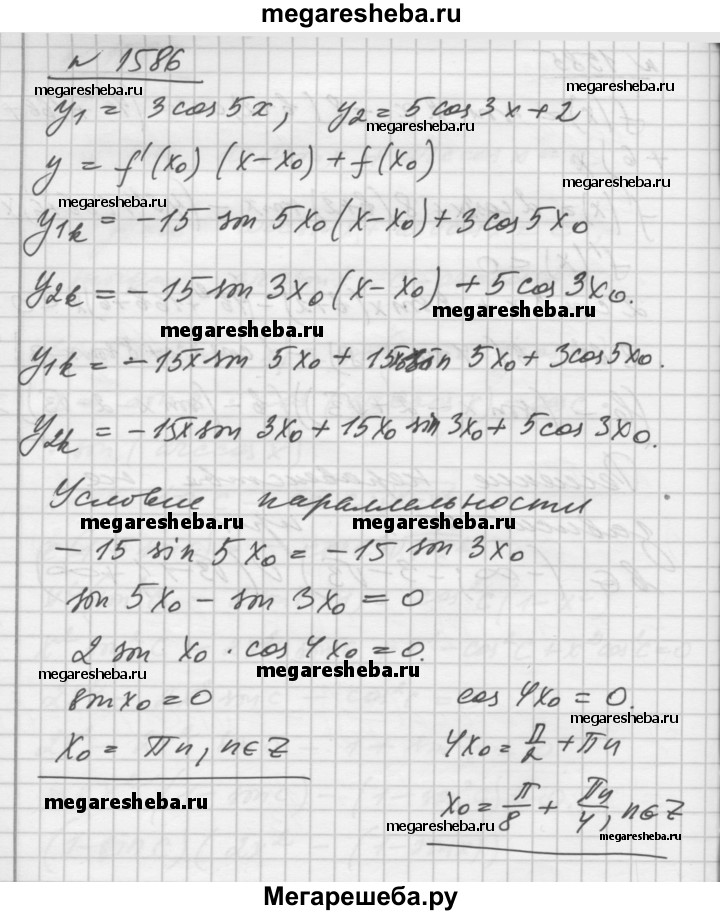 megaresheba.ru
N 1586
megaresheba.ru megaresheba.ru
y1 = 3 cos 5x, y2 = 5 cos 3x + 2
megaresheba.ru
y = f'(x0) (x - x0) + f(x0)
megaresheba.ru megaresheba.ru
y1k = - 15 sin 5x0 (x - x0) + 3 cos 5x0
y2k = - 15 sin 3x0 (x - x0) + 5 cos 3x0.
megaresheba.ru
megaresheba.ru
y1k = - 15x sin 5x0 + 15x0 sin 5x0 + 3 cos 5x0.
y2k = - 15x sin 3x0 + 15x0 sin 3x0 + 5 cos 3x0.
Условие параллельности
megaresheba.ru megaresheba.ru
- 15 sin 5x0 = - 15 sin 3x0
sin 5x0 - sin 3x0 = 0
2 sin x0 · cos 4x0 = 0.
megaresheba.ru megaresheba.ru
sin x0 = 0 cos 4x0 = 0.
megaresheba.ru
x0 = πn, n∈Z 4x0 = π/2 + πn
megaresheba.ru
x0 = π/8 + πn/4, n∈Z
megaresheba.ru megaresheba.ru
Мегарешеба.ру